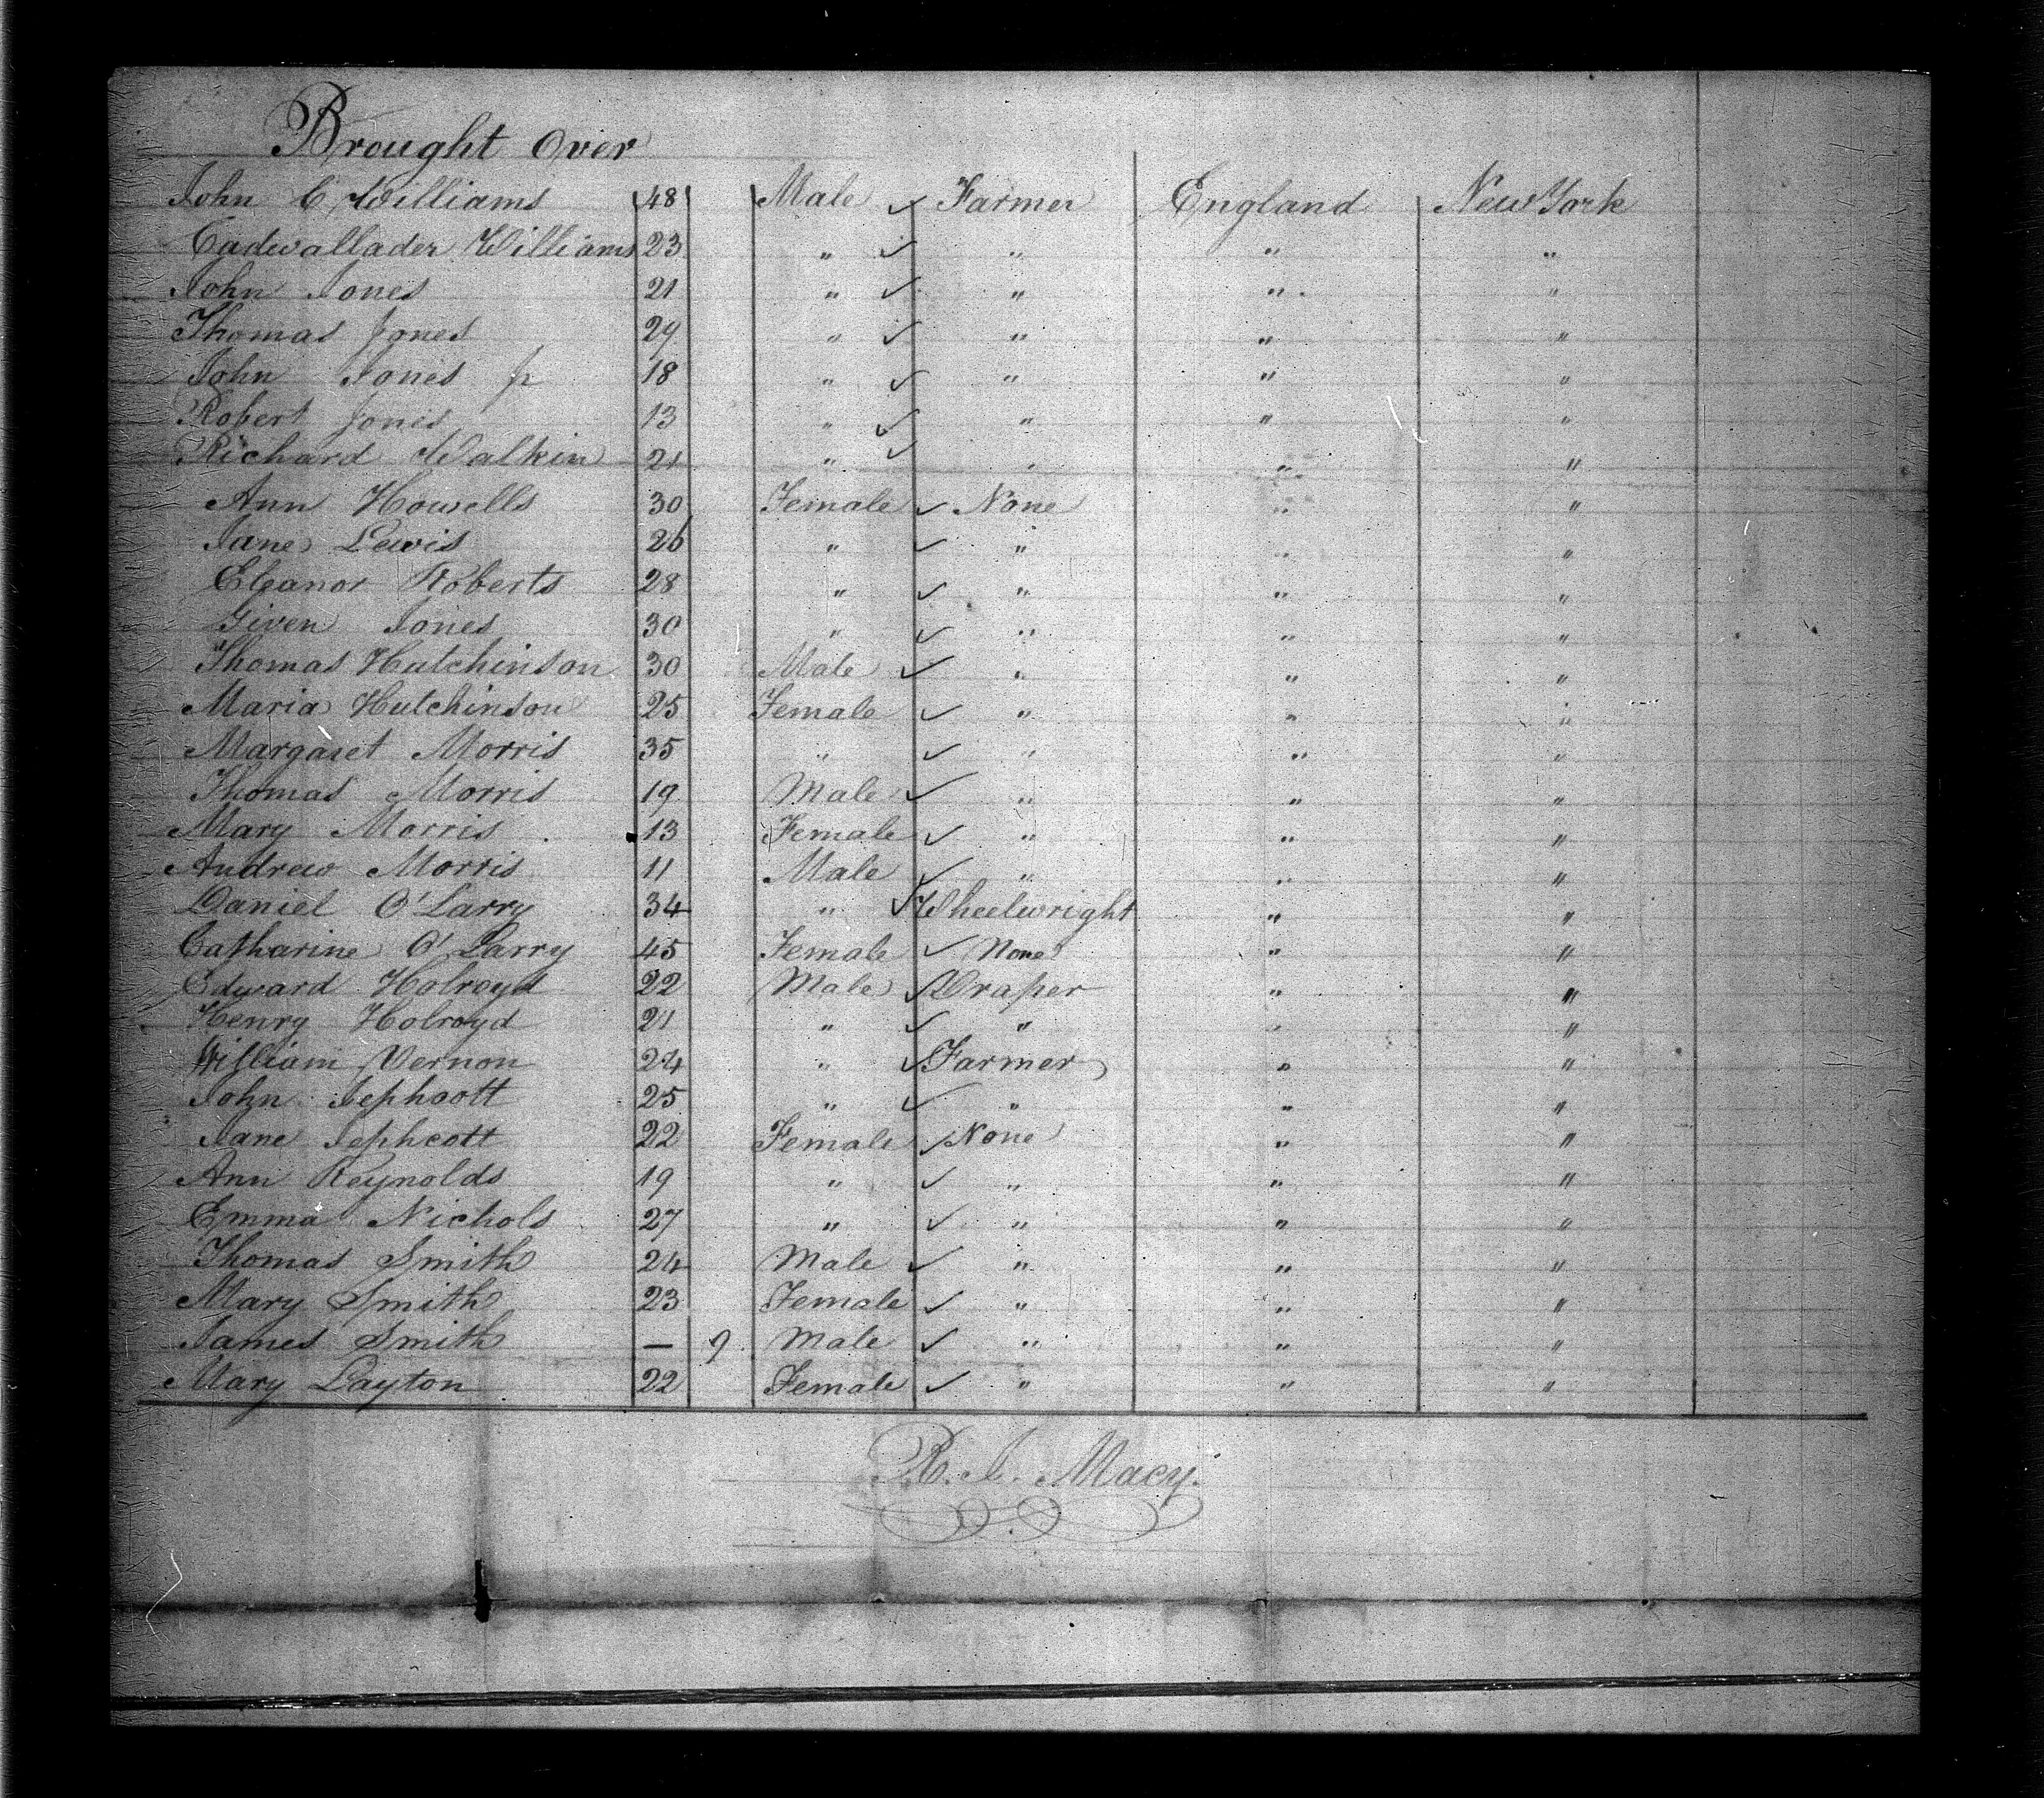 Brought Over
John C Williams 48 Male ✓ Farmer England New York
Cadwallader Williams 23 " ✓ " " "
John Jones 21 " ✓ " " "
Thomas Jones 29 " ✓ " " "
John Jones Jr 18 " ✓ " " "
Robert Jones 13 " ✓ " " "
Richard Walkin 21 " ✓ " " "
Ann Howells 30 Female ✓ None " "
Jane Lewis 26 " ✓ " " "
Eleanor Roberts 28 " ✓ " " "
Given Jones 30 " ✓ " " "
Thomas Hutchinson 30 Male ✓ " " "
Maria Hutchinson 25 Female ✓ " " "
Margaret Morris 35 " ✓ " " "
Thomas Morris 19 Male ✓ " " "
Mary Morris 13 Female ✓ " " "
Andrew Morris 11 Male ✓ " " "
Daniel O'Larry 34 " ✓ Wheelwright " "
Catharine O'Larry 45 Female ✓ None " "
Edward Holroyd 22 Male ✓ Draper " "
Henry Holroyd 21 " ✓ " " "
William Vernon 24 " ✓ Farmer " "
John Jephcott 25 " ✓ " " "
Jane Jephcott 22 Female ✓ None " "
Ann Reynolds 19 " ✓ " " "
Emma Nichols 27 " ✓ " " "
Thomas Smith 24 Male ✓ " " "
Mary Smith 23 Female ✓ " " "
James Smith — 9 Male ✓ " " "
Mary Layton 22 Female ✓ " " "
R. J. Macy.